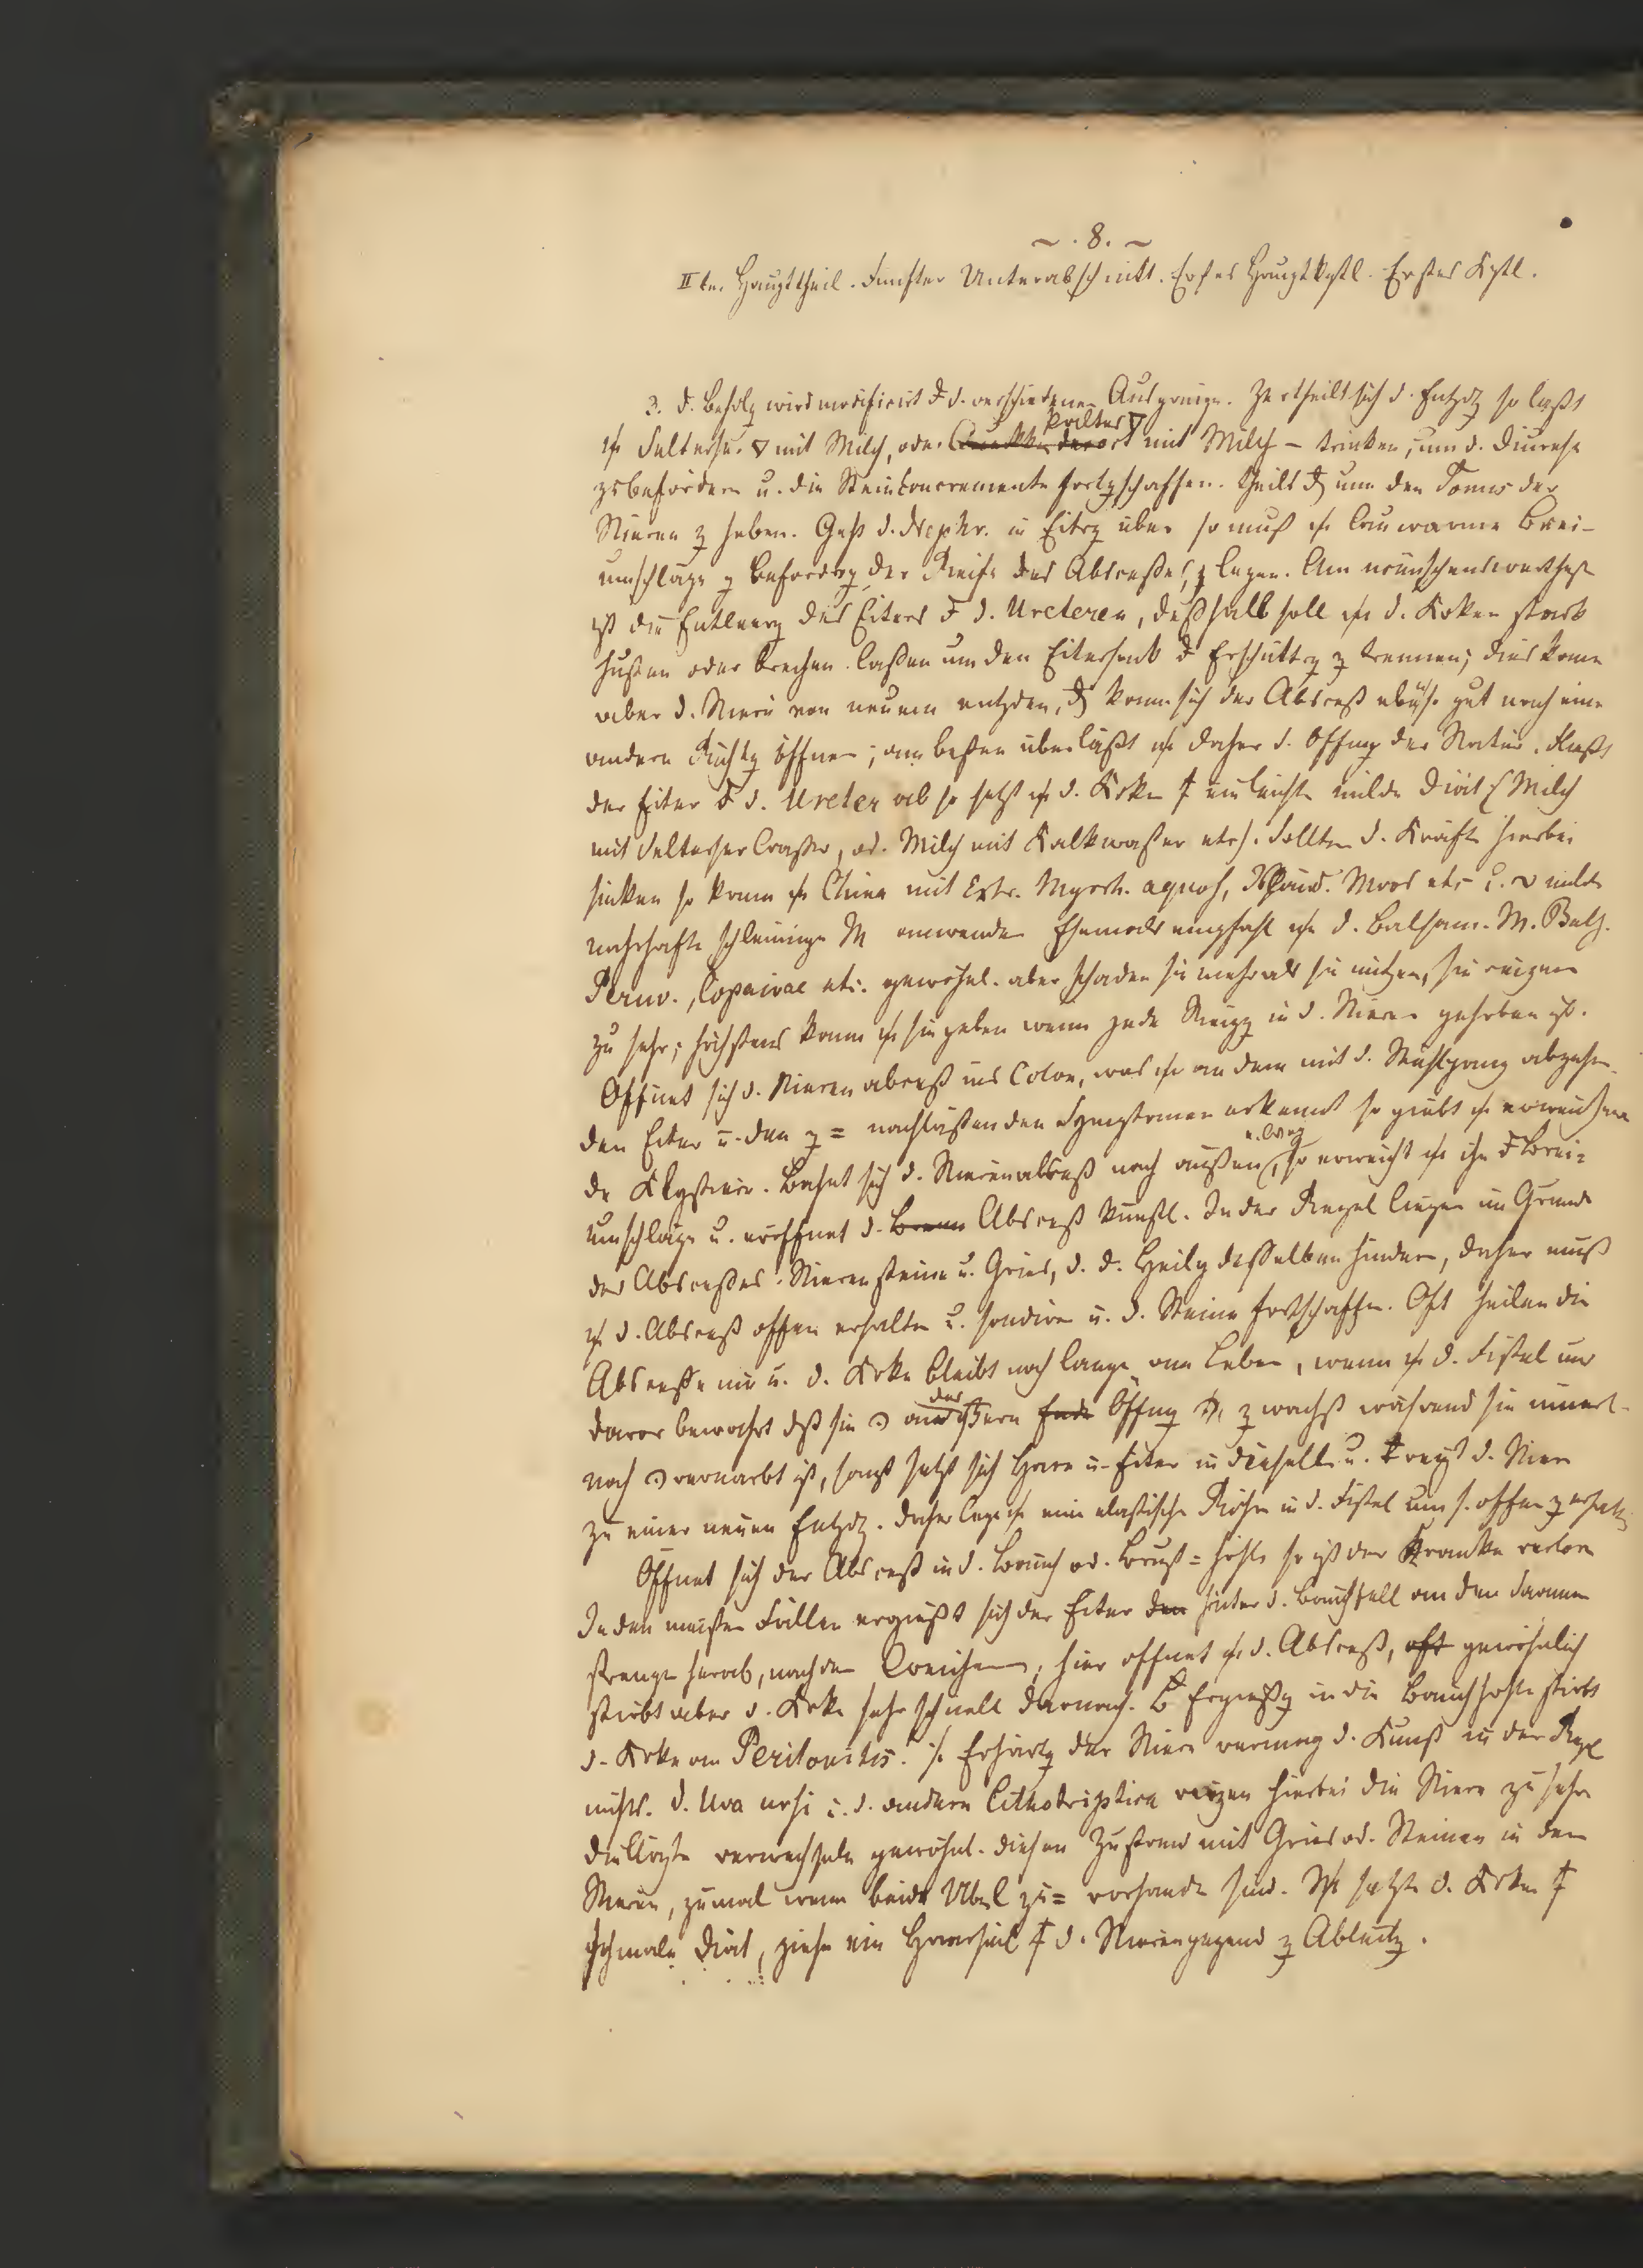 ~ . 8. ~
II te. Haupttheil. Fünfter Unterabschnitt. Erstes Hauptkptl. Erstes Kptl.
3. d. Behdlg wird modificirt d. verschiedenen Ausgänge. Zertheilt sich d. Entzdg so läßt
Selterser ▽ mit Milch, oder kaltes ▽ mit Milch – trinken, um d. Diurese
zu befördern u. die Steinconcremente fortzschaffen. theils um den Tonus der
Nieren z heben. Geht d. Nephr. in Eitrg über so muß lauwarme Brei-
umschläge z Beförderg der Reife des Absceßes z legen. Am wünschenswerthest
ist die Entleerg des Eiters d. Ureteren, deßhalb soll d. Krken stark
husten oder brechen laßen um den Eitersack Erschüttrg z trennen; dies kann
aber d. Niere von neuem entzden, kann sich der Absceß gut nach einer
andern Richtg öffnen; am besten überläßt daher d. Öffng der Natur. Fließt
der Eiter d. Ureter ab so setzt d. Krken leichte milde Diät (Milch
mit Selterser Waßer, od. Milch mit Kalkwaßer etc). Sollten d. Kräfte hierbei
sinken so kann China mit Extr. Myrrh. aquos, Isländ. Moos etc u. milde
nahrhafte schleimige M anwenden Ehemals empfahl d. Balsam. M. Bals.
Peruv., Copaivae etc. gewöhnl. aber schaden sie mehr als sie nützen, sie reizen
zu sehr; höchstens kann sie geben wenn jede Reizg in d. Nieren gehoben ist.
Öffnet sich d. Nierenabceß ins Colon, was an dem mit d. Stuhlgang abgehen-
den Eiter u. den = nachlaßenden Symptomen erkennt so giebt erweichen
de Klystiere. Bahnt sich d. Nierenabsceß nach außen e. Weg, so erweicht ihn Brei-
umschläge u. eröffnet d. Absceß künstl. In der Regel liegen im Grunde
des Absceßes Nierensteine u. Gries, d. d. Heilg desselben hindern, daher muß
d. Absceß offen erhalten u. sondiren u. d. Steine fortschaffen. Oft heilen die
Absceße nie u. d. Krke bleibt noch lange am Leben, wenn d. Fistel nur
davor bewahrt dß sie an der äußern Öffng zwächst während sie innerl-
noch vernarbt ist, sonst setzt sich Harn u. Eiter in dieselbe u. reizt d. Niere
zu einer neuen Entzdg. Daher lege eine elastische Röhre in d. Fistel um s. offen z erhalten
Öffnet sich der Absceß in d. Bauch od. Brust = höhle so ist der Kranke verloren
In den meisten Fällen ergießt sich der Eiter hinter d. Bauchfell an den Darmen
strange herab, nach den Weichen, hier öffnet d. Absceß, gewöhnlich
stirbt aber d. Krke sehr schnell darnach. B Ergießg in die Bauchhöhle stirbt
d. Krke an Peritonitis. Erhärtg der Niere vermag d. Kunst in der Regel
nichts. d. Uva ursi u. d. andern Lithotriptica reizen hierbei die Niere zu sehr
die Ärzte verwechseln gewöhnl. diesen Zustand mit Gries od. Steinen in den
Nieren, zumal wenn beide Übel zu= vorhanden sind. setzte d. Krken
schmale Diät, ziehe ein Haarseil d. Nierengegend z Ableitg.